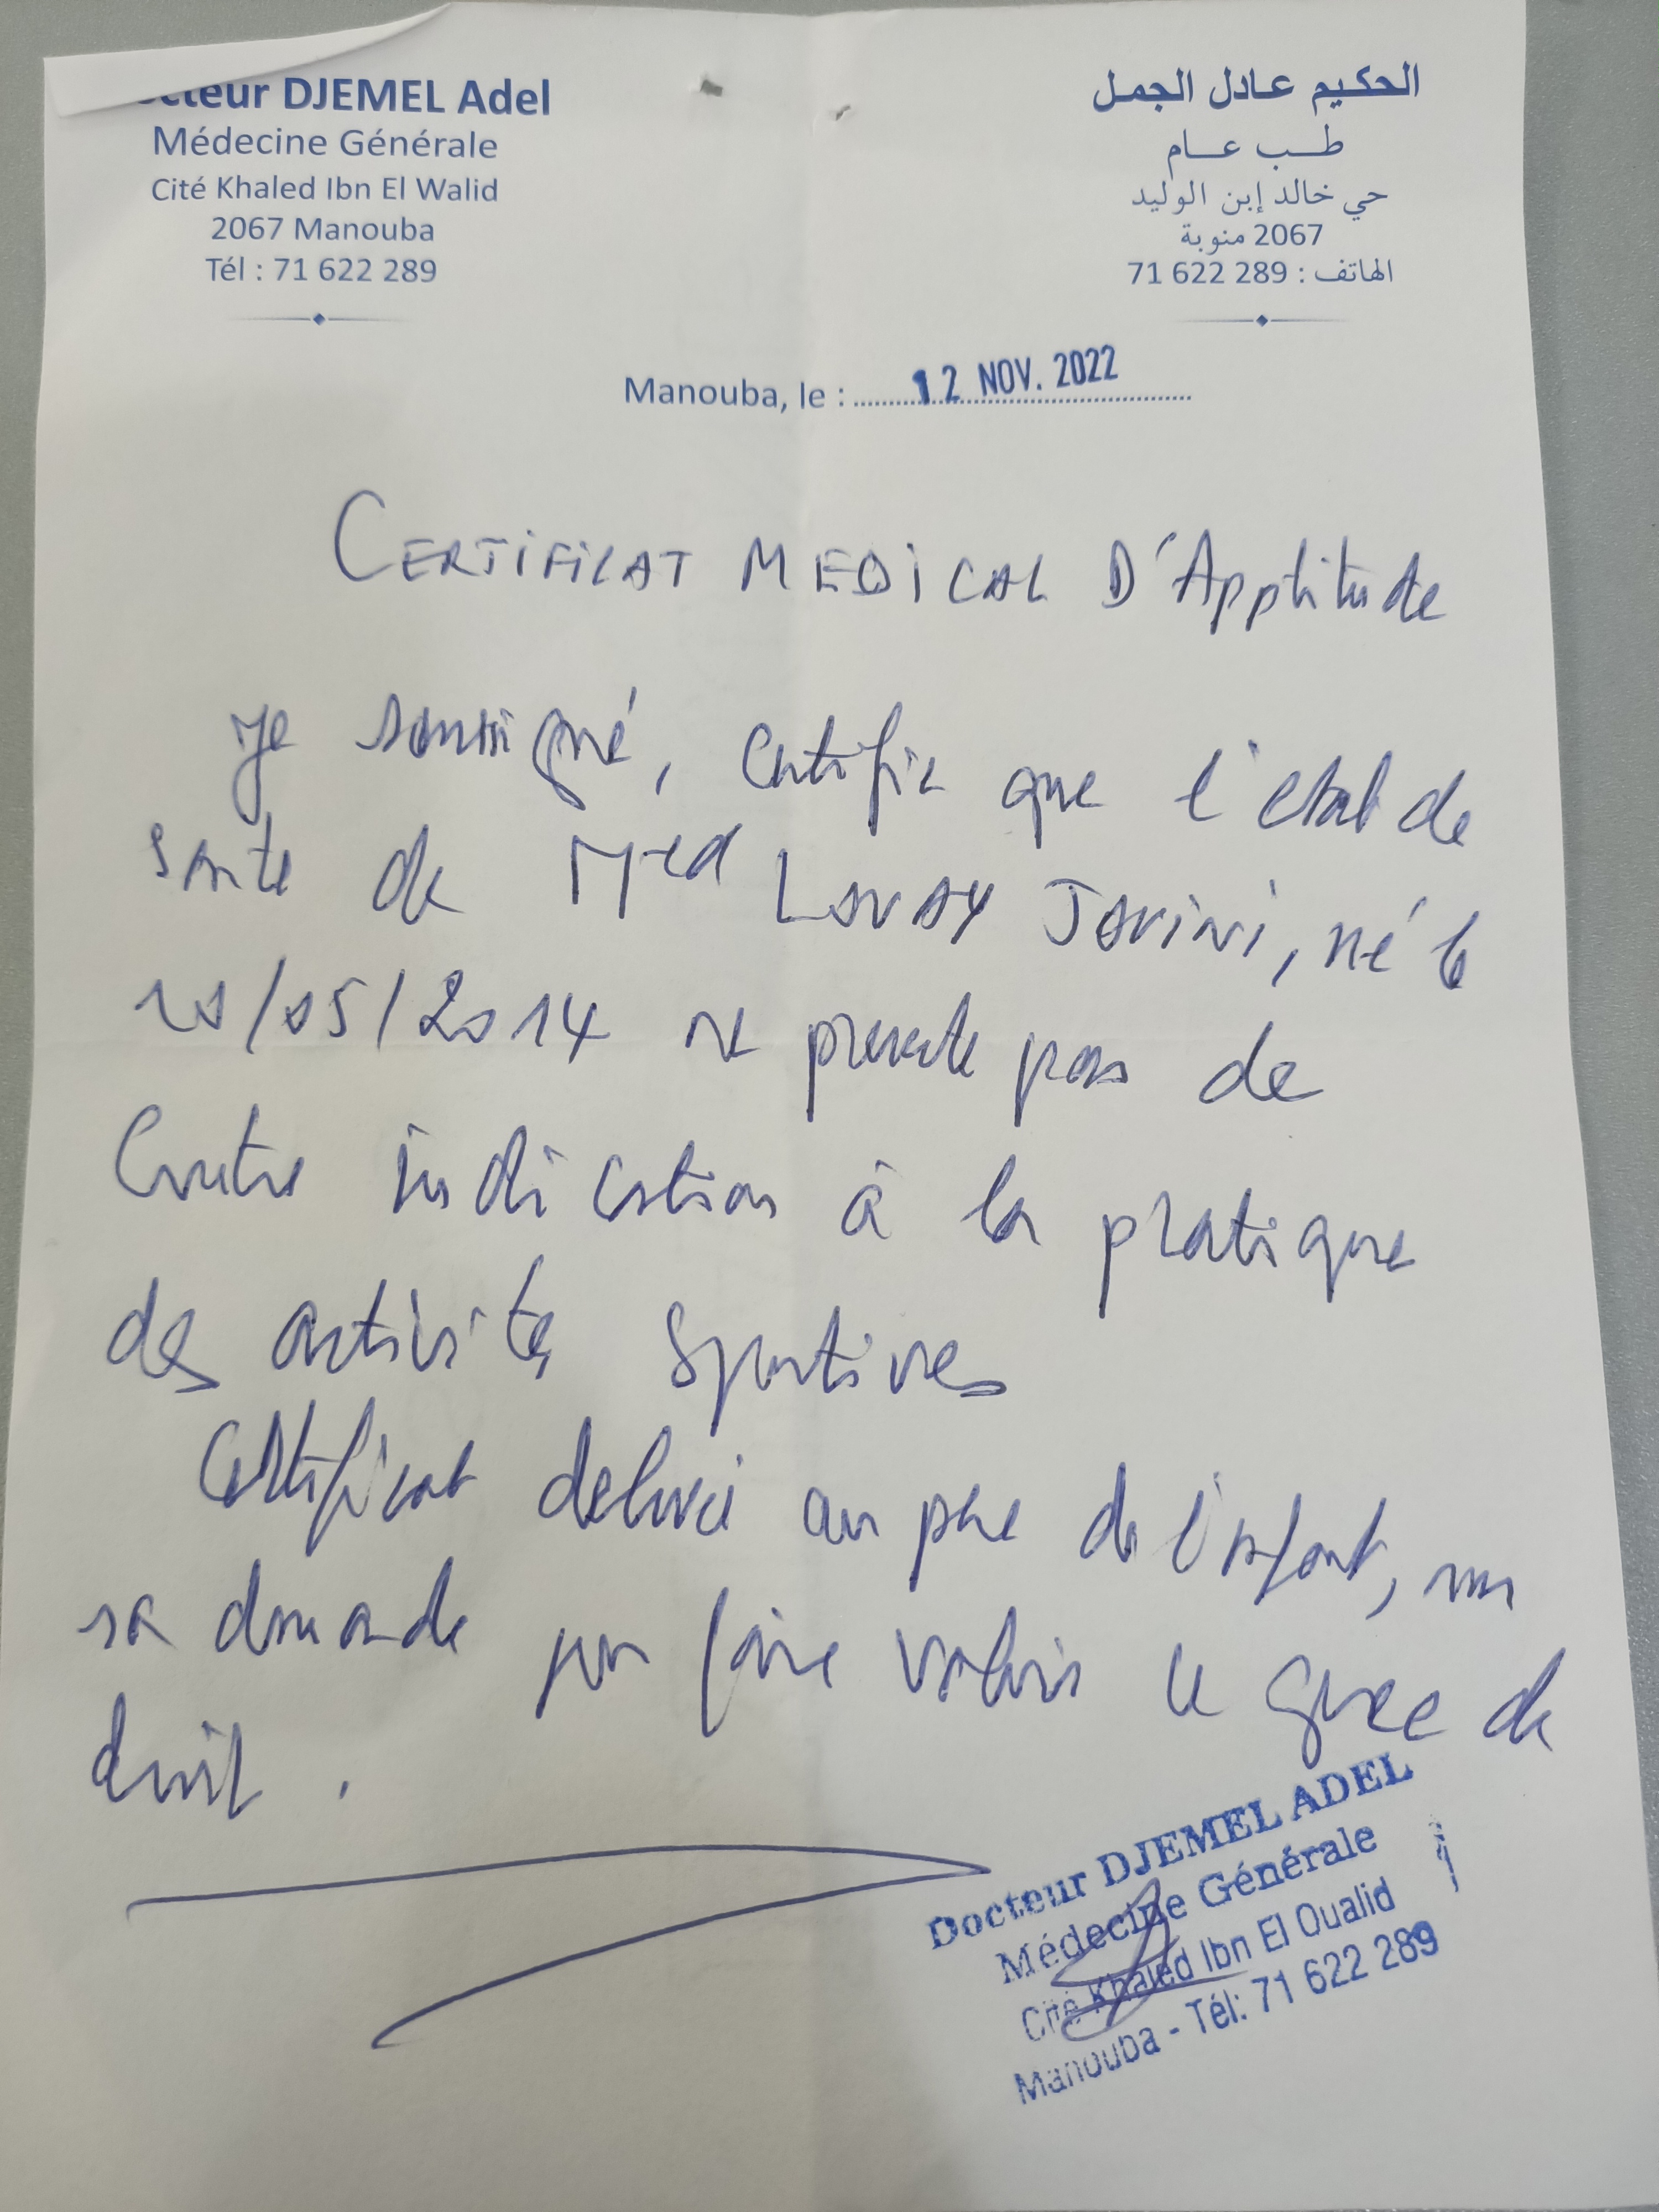 cteur DJEMEL Adel
Médecine Générale
Cité Khaled Ibn El Walid
2067 Manouba
Tél : 71 622 289
الحكيم عادل الجمل
طب عام
حي خالد إبن الوليد
2067 منوبة
الهاتف : 289 622 71
Manouba, le : 12 NOV. 2022
CERTIFICAT MEDICAL D'Apptitude
Je soussigné, certifie que l'etat de
sante de Med LOUAY JOUINI, né le
20/05/2014 ne presente pas de
Contre indication à la pratique
des activités sportives
Certificat delivré au pere de l'enfant, sur
sa demande pour faire valoir ce que de
droit.
Docteur DJEMEL ADEL
Médecine Générale
Cité Khaled Ibn El Oualid
Manouba - Tél: 71 622 289